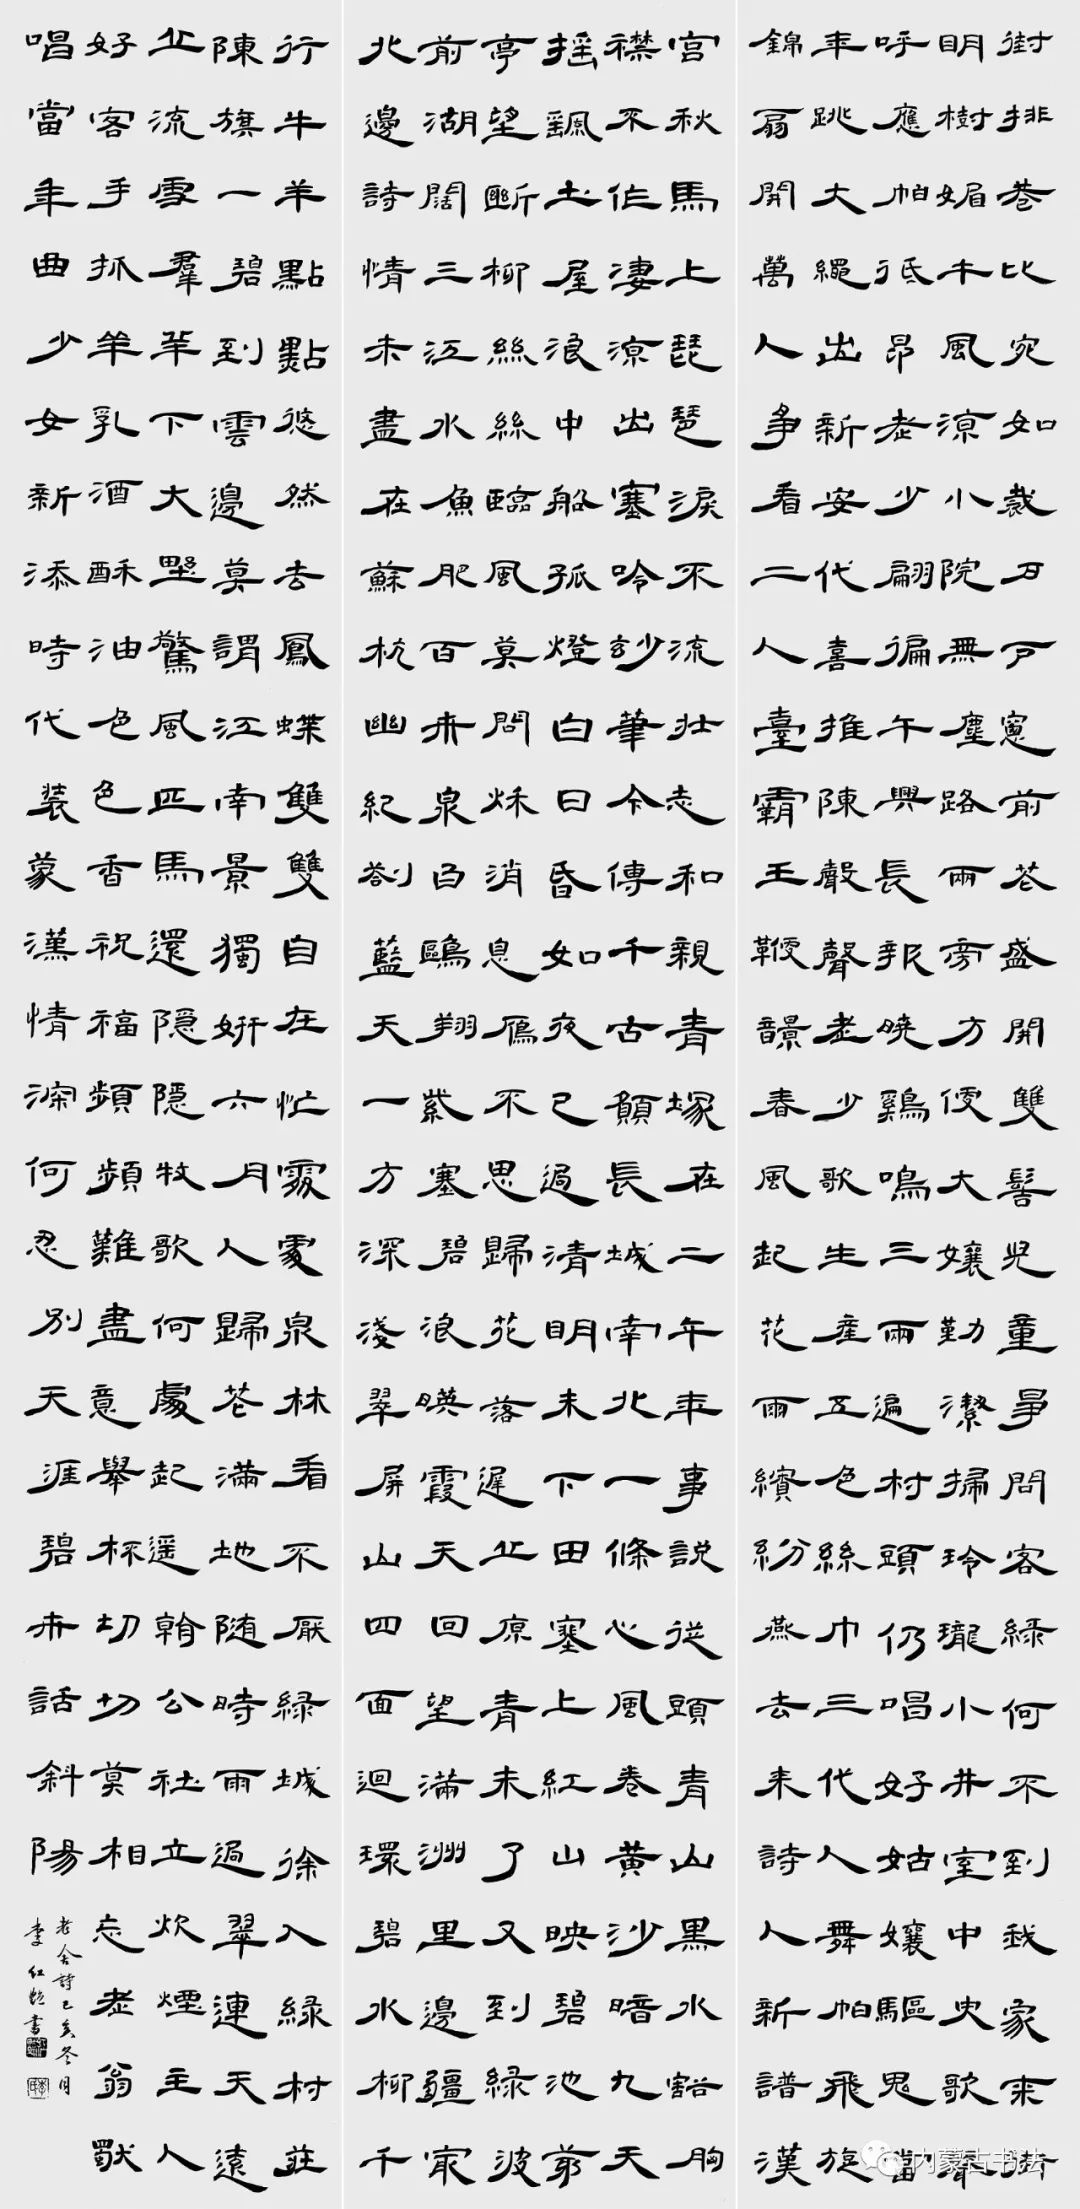 街排巷比宛如裁万戶窗前花盛開雙髻兒童爭問客緣何不到我家來街
明樹媚午風涼小院無塵路兩旁方便大孃勤潔掃玲瓏小井室中央歌聲
呼應帕低昂老少翩徧午興長報曉鷄鳴三兩遍村頭仍唱好姑孃驅鬼當
年跳大繩出新安代喜推陳聲聲老少歌生產五色絲巾三代人舞帕飛旋
錦扇開萬人爭看二人臺霸王鞭韻春風起花雨繽紛燕去來詩人新譜漢
宮秋馬上琵琶淚不流壯志和親青塚在二千年事說從頭青山黑水豁胸
襟不作淒涼出塞吟妙筆今傳千古願長城南北一條心風卷黃沙暗九天
搖飄土屋浪中船孤燈白日昏如夜已過清明未下田塞上紅山映碧池茅
亭望斷柳絲絲臨風莫問秋消息雁不思歸花落遲草原青未了又到綠波
前湖闊三江水魚肥百草泉白鷗翔紫塞碧浪映霞天回望滿洲里邊疆最
北邊詩情未盡在蘇杭幽絕剳藍天一方深淺翠屏山四面迴環碧水柳千
行牛羊點點悠然去鳳蝶雙雙自在忙處處泉林看不厭綠城徐入綠村莊
陳旗一碧到雲邊莫謂江南景獨姸六月人歸花滿地隨時雨過翠連天遠
草流雲羣羊下大野驚風匹馬還隱隱牧歌何處起遥看公社立炊煙主人
好客手抓羊乳酒酥油色色香祝福頻頻難盡意舉杯切切莫相忘老翁猷
唱當年曲少女新添時代裝蒙漢情深何忍別天涯碧草話斜陽
老舍詩己亥冬月
李紅書
内蒙古书法